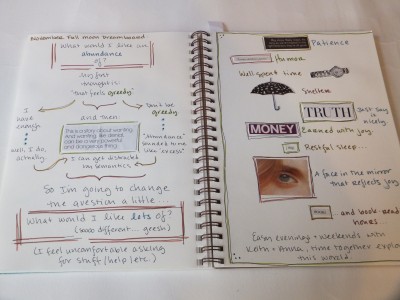 November Full Moon Dreamboard
What would I like an
abundance
of?
my first
thought is:
"that feels greedy"
I
have
enough.
Don't be
greedy.
and then
This is a story about wanting.
And wanting, like denial,
can be a very powerful
and dangerous thing.
Well, I do,
actually
"Abundance"
sounded to me
like "excess"
I can get distracted
by semantics
So I'm going to change
the question a little...
What would I like lots of?
(sooo different... geesh)
(I feel uncomfortable asking
for stuff/help etc.)
Patience
Humor
Well spent time
Shelter
TRUTH
Just say it
nicely.
MONEY
Earned with joy.
Restful sleep...
A face in the mirror
that reflects joy.
... and book-read
hours...
Easy evenings + weekends with
Keith + Anna, time together explo
this world.